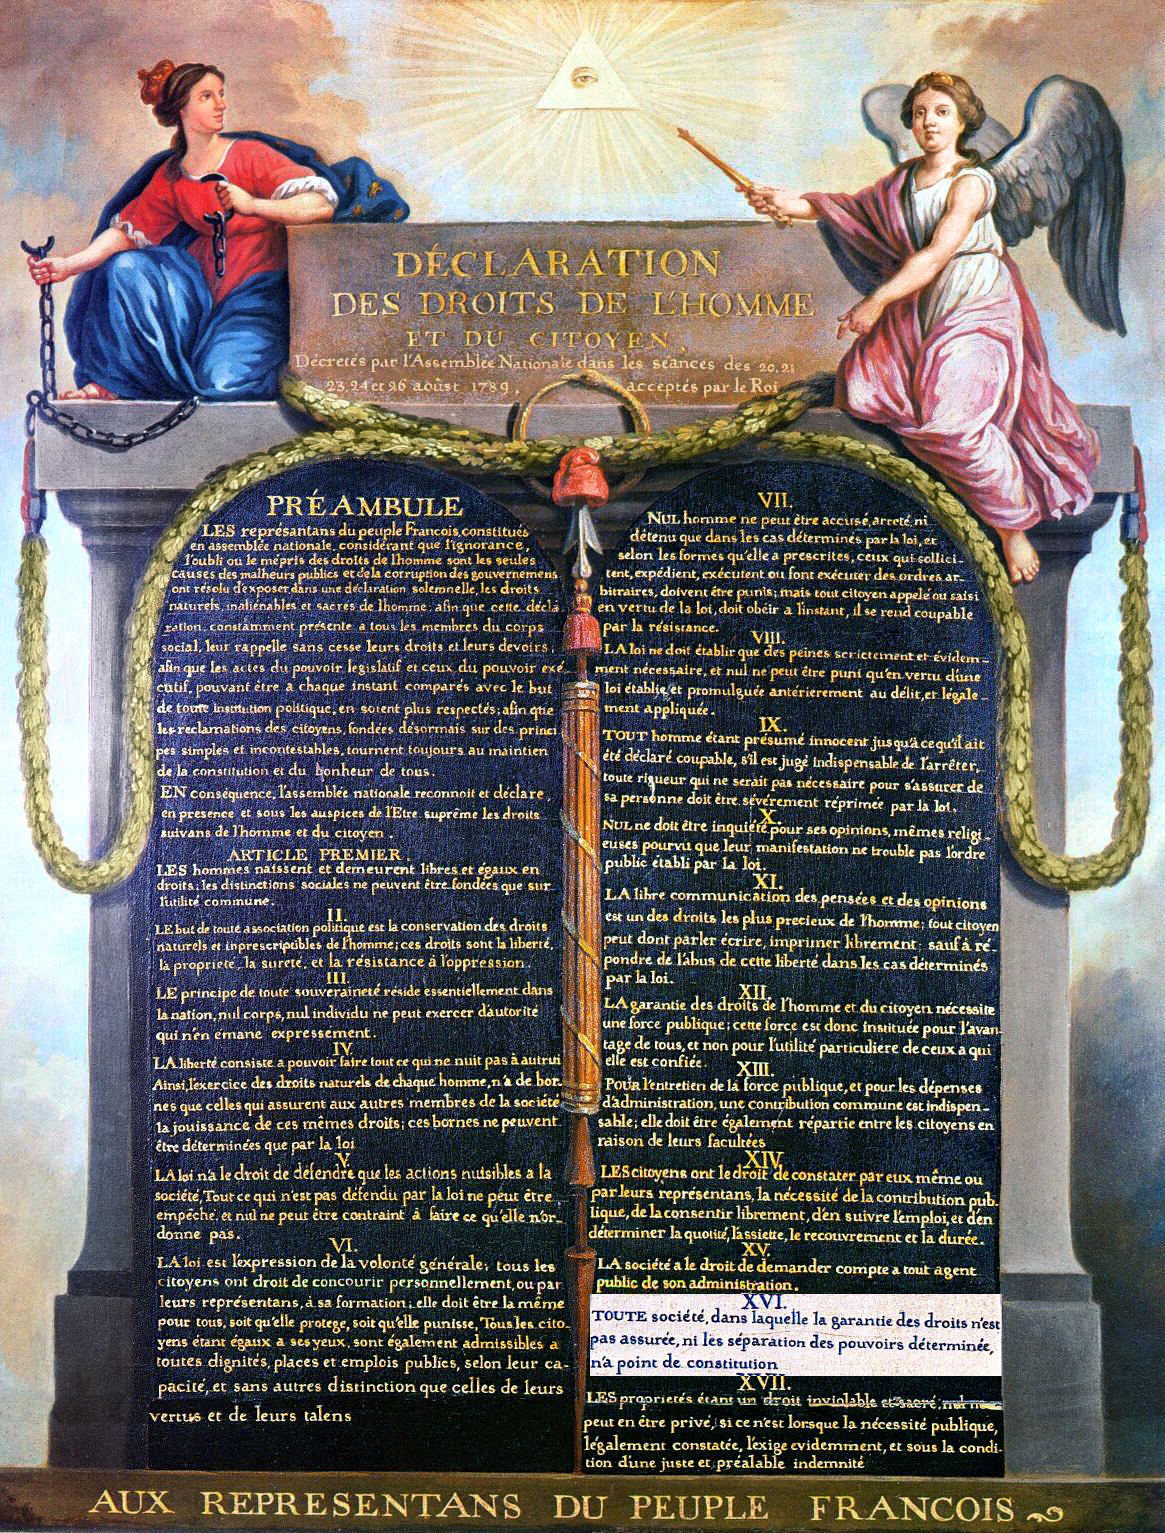 DÉCLARATION
DES DROITS DE L'HOMME
ET DU CITOYEN,
Décretés par l'Assemblée Nationale dans les séances des 20, 21
23, 24 et 26 août 1789, acceptés par le Roi
PRÉAMBULE
LES représantans du peuple François, constitués
en assemblée nationale, considérant que l'ignorance,
l'oubli ou le mépris des droits de l'homme sont les seules
causes des malheurs publics et de la corruption des gouvernemens
ont résolu d'exposer dans une déclaration solemnelle, les droits
naturels, inaliénables et sacrés de l'homme; afin que cette décla-
ration, constamment présente a tous les membres du corps
social, leur rappelle sans cesse leurs droits et leurs devoirs;
afin que les actes du pouvoir législatif et ceux du pouvoir exé-
cutif, pouvant être a chaque instant comparés avec le but
de toute institution politique, en soient plus respectés; afin que
les reclamations des citoyens, fondées désormais sur des princi
pes simples et incontestables, tournent toujours au maintien
de la constitution et du bonheur de tous.
EN conséquence, l'assemblée nationale reconnoit et déclare,
en presence et sous les auspices de l'Etre suprême les droits
suivans de l'homme et du citoyen.
ARTICLE PREMIER.
LES hommes naissent et demeurent libres et égaux en
droits; les distinctions sociales ne peuvent être fondées que sur
l'utilité commune.
II.
LE but de toute association politique est la conservation des droits
naturels et inprescriptibles de l'homme; ces droits sont la liberté,
la proprieté, la sureté, et la résistance à l'oppression.
III.
LE principe de toute souveraineté réside essentiellement dans
la nation, nul corps, nul individu ne peut exercer d'autorité
qui n'en emane expressément.
IV.
LA liberté consiste a pouvoir faire tout ce qui ne nuit pas à autrui
Ainsi, l'exercice des droits naturels de chaque homme, n'a de bor-
nes que celles qui assurent aux autres membres de la société
la jouissance de ces mêmes droits; ces bornes ne peuvent
être déterminées que par la loi
V.
LA loi n'a le droit de défendre que les actions nuisibles a la
société, Tout ce qui n'est pas défendu par la loi ne peut être
empêché, et nul ne peut être contraint à faire ce qu'elle n'or-
donne pas.
VI.
LA loi est l'expression de la volonté générale; tous les
citoyens ont droit de concourir personnellement, ou par
leurs représentans, à sa formation; elle doit être la même
pour tous, soit qu'elle protege, soit qu'elle punisse, Tous les cito-
yens étant égaux a ses yeux, sont également admissibles a
toutes dignités, places et emplois publics, selon leur ca-
pacité, et sans autres distinction que celles de leurs
vertus et de leurs talens
VII.
NUL homme ne peut être accusé, arreté, ni
détenu que dans les cas déterminés par la loi, et
selon les formes qu'elle a prescrites, ceux qui sollici-
tent, expédient, exécutent ou font exécuter des ordres ar-
bitraires, doivent être punis; mais tout citoyen appelé ou saisi
en vertu de la loi, doit obéir a l'instant, il se rend coupable
par la résistance.
VIII.
LA loi ne doit établir que des peines strictement et évidem-
ment nécessaire, et nul ne peut être puni qu'en vertu d'une
loi établie et promulguée antérierement au délit, et légale-
ment appliquée.
IX.
TOUT homme étant présumé innocent jusqu'à ce qu'il ait
été déclaré coupable, s'il est jugé indispensable de l'arrêter,
toute rigueur qui ne serait pas nécessaire pour s'assurer de
sa personne doit être sévèrement réprimée par la loi.
X.
NUL ne doit être inquiété pour ses opinions, mêmes religi-
euses pourvu que leur manifestation ne trouble pas l'ordre
public établi par la loi.
XI.
LA libre communication des pensées et des opinions
est un des droits les plus precieux de l'homme; tout citoyen
peut dont parler écrire, imprimer librement; sauf à ré-
pondre de l'abus de cette liberté dans les cas déterminés
par la loi.
XII.
LA garantie des droits de l'homme et du citoyen nécessite
une force publique; cette force est donc instituée pour l'avan-
tage de tous, et non pour l'utilité particuliere de ceux a qui
elle est confiée.
XIII.
POUR l'entretien de la force publique, et pour les dépenses
d'administration, une contribution commune est indispen-
sable; elle doit être également répartie entre les citoyens en
raison de leurs facultées
XIV.
LES citoyens ont le droit de constater par eux même ou
par leurs représentans, la nécessité de la contribution pub-
lique, de la consentir librement, d'en suivre l'emploi, et d'en
déterminer la quotité, l'assiette, le recouvrement et la durée.
XV.
LA société a le droit de demander compte a tout agent
public de son administration.
XVI.
TOUTE société, dans laquelle la garantie des droits n'est
pas assurée, ni les séparation des pouvoirs déterminée,
n'a point de constitution
XVII.
LES proprietés étant un droit inviolable et sacré, nul ne
peut en être privé, si ce n'est lorsque la nécessité publique,
légalement constatée, l'exige evidemment, et sous la condi-
tion d'une juste et préalable indemnité
AUX REPRESENTANS DU PEUPLE FRANCOIS